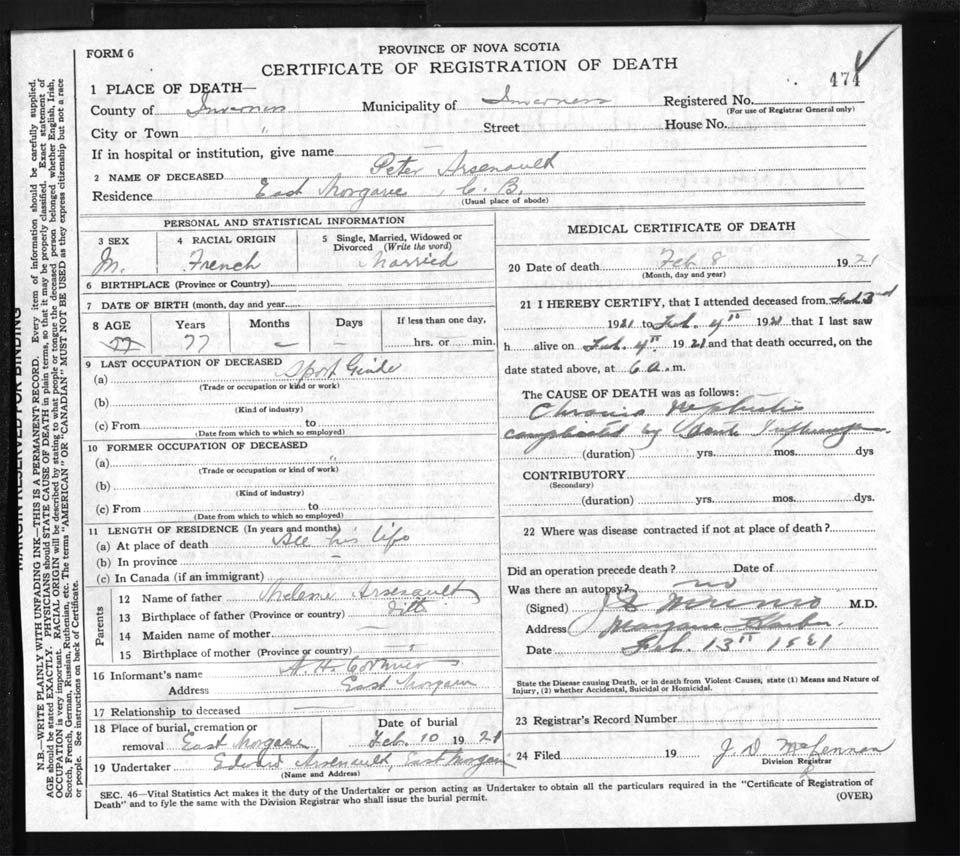 FORM 6
PROVINCE OF NOVA SCOTIA
CERTIFICATE OF REGISTRATION OF DEATH
474
1 PLACE OF DEATH—
County of Inverness Municipality of Inverness Registered No.
(For use of Registrar General only)
City or Town " Street House No.
If in hospital or institution, give name —
2 NAME OF DECEASED Peter Arsenault
Residence East Margaree, C. B.
(Usual place of abode)
PERSONAL AND STATISTICAL INFORMATION
3 SEX 4 RACIAL ORIGIN 5 Single, Married, Widowed or Divorced (Write the word)
M. French Married
6 BIRTHPLACE (Province or Country)
7 DATE OF BIRTH (month, day and year)
8 AGE Years Months Days If less than one day,
77 77 — — hrs. or min.
9 LAST OCCUPATION OF DECEASED
(a) Sport Guide
(Trade or occupation or kind or work)
(b)
(Kind of industry)
(c) From to
(Date from which to which so employed)
10 FORMER OCCUPATION OF DECEASED
(a) "
(Trade or occupation or kind of work)
(b)
(Kind of industry)
(c) From to
(Date from which to which so employed)
11 LENGTH OF RESIDENCE (In years and months)
(a) At place of death All his life
(b) In province —
(c) In Canada (if an immigrant)
Parents
12 Name of father Arsenault
13 Birthplace of father (Province or country) Ditto
14 Maiden name of mother —
15 Birthplace of mother (Province or country)
16 Informant's name A. H. Cormier
Address East Margaree
17 Relationship to deceased
18 Place of burial, cremation or removal East Margaree
Date of burial
Feb. 10 1921
19 Undertaker Edward Arsenault, East Margaree
(Name and Address)
MEDICAL CERTIFICATE OF DEATH
20 Date of death Feb 8 1921
(Month, day and year)
21 I HEREBY CERTIFY, that I attended deceased from Feb 3rd
1921 to Feb. 4th 1921 that I last saw
h alive on Feb. 4th 1921 and that death occurred, on the
date stated above, at 6 a.m.
The CAUSE OF DEATH was as follows:
Chronic Nephritis
complicated by Acute Influenza
(duration) yrs. mos. dys
CONTRIBUTORY
(Secondary)
(duration) yrs. mos. dys.
22 Where was disease contracted if not at place of death?
Did an operation precede death? Date of
Was there an autopsy? no
(Signed) M.D.
Address Margaree Harbor.
Date Feb. 13th 1921
State the Disease causing Death, or in death from Violent Causes, state (1) Means and Nature of
Injury, (2) whether Accidental, Suicidal or Homicidal.
23 Registrar's Record Number
24 Filed 19 J. D. McLennan
Division Registrar
SEC. 46—Vital Statistics Act makes it the duty of the Undertaker or person acting as Undertaker to obtain all the particulars required in the "Certificate of Registration of
Death" and to fyle the same with the Division Registrar who shall issue the burial permit.
(OVER)
MARGIN RESERVED FOR BINDING
N.B.—WRITE PLAINLY WITH UNFADING INK—THIS IS A PERMANENT RECORD. Every item of information should be carefully supplied.
AGE should be stated EXACTLY. PHYSICIANS should STATE CAUSE OF DEATH in plain terms, so that it may be properly classified. Exact statement of
OCCUPATION is very important. RACIAL ORIGIN will be described by stating to what people or tongue the deceased person belonged whether English, Irish,
Scotch, French, German, Russian, Ruthenian, etc. The terms "AMERICAN" OR "CANADIAN" MUST NOT BE USED as they express citizenship but not a race
or people. See instructions on back of Certificate.